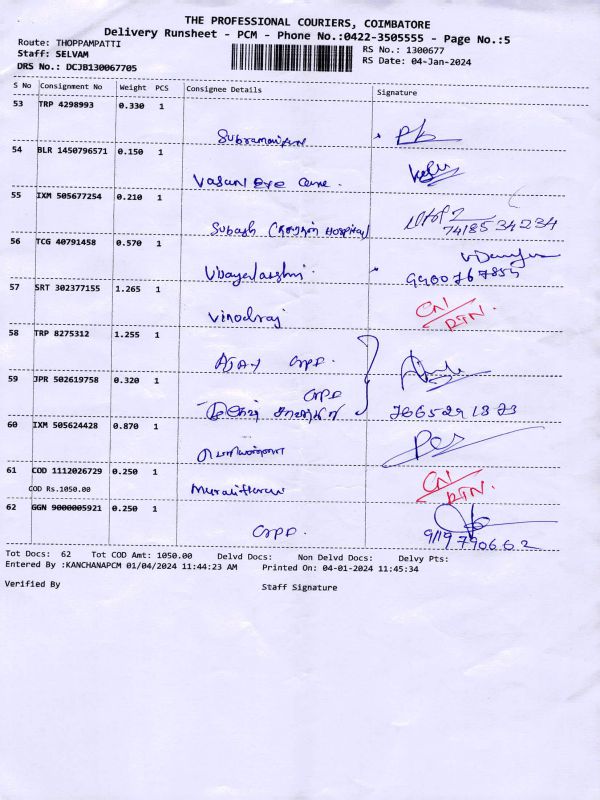 THE PROFESSIONAL COURIERS, COIMBATORE
Delivery Runsheet - PCM - Phone No.:0422-3505555 - Page No.:5
Route: THOPPAMPATTI
Staff: SELVAM
DRS No.: DCJB130067705
RS No.: 1300677
RS Date: 04-Jan-2024
S No Consignment No Weight PCS Consignee Details Signature
53 TRP 4298993 0.330 1
54 BLR 1450796571 0.150 1
Vasan eye care.
55 IXM 505677254 0.210 1
Subash Hospital
7418534234
56 TCG 40791458 0.570 1
Vijayalakshmi.
57 SRT 302377155 1.265 1
Vinodraj
CN/
RTN.
58 TRP 8275312 1.255 1
AJAY CRPF
59 JPR 502619758 0.320 1
CRPF
60 IXM 505624428 0.870 1
61 COD 1112026729 0.250 1
COD Rs.1050.00
Muralitharan
CN/
RTN.
62 GGN 9000005921 0.250 1
CRPF.
Tot Docs: 62 Tot COD Amt: 1050.00 Delvd Docs: Non Delvd Docs: Delvy Pts:
Entered By :KANCHANAPCM 01/04/2024 11:44:23 AM Printed On: 04-01-2024 11:45:34
Verified By Staff Signature